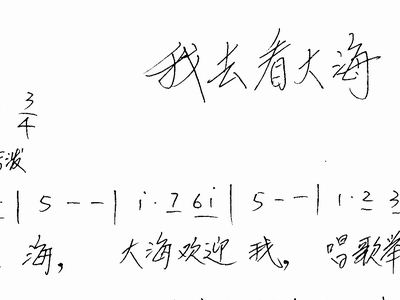 我去看大海
3/4
泼
| 5 - - | i · 7 6 i | 5 - - | 1 · 2 3
海， 大海欢迎 我， 唱歌举